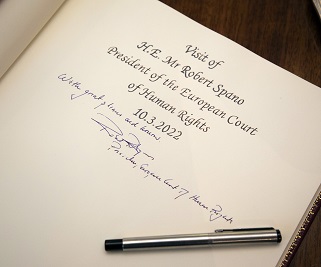 Visit of
H.E. Mr Robert Spano
President of the European Court
of Human Rights
10.3.2022
With great and honour
President, European Court of Human Rights